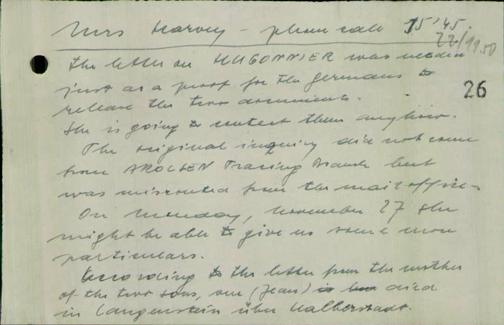 Mrs Harvey - phone call 15'45.
22/11.50
26
The letter on HUGONNIER was needed
just as a proof for the Germans to
release the two documents.
She is going to contact them anyhow.
The original inquiry did not come
from AROLSEN Tracing Branch but
was misrouted from the mail office.
On Monday, November 27 she
might be able to give us some more
particulars.
According to the letter from the mother
of the two sons, one (Jean) is died
in Langenstein über Halberstadt.